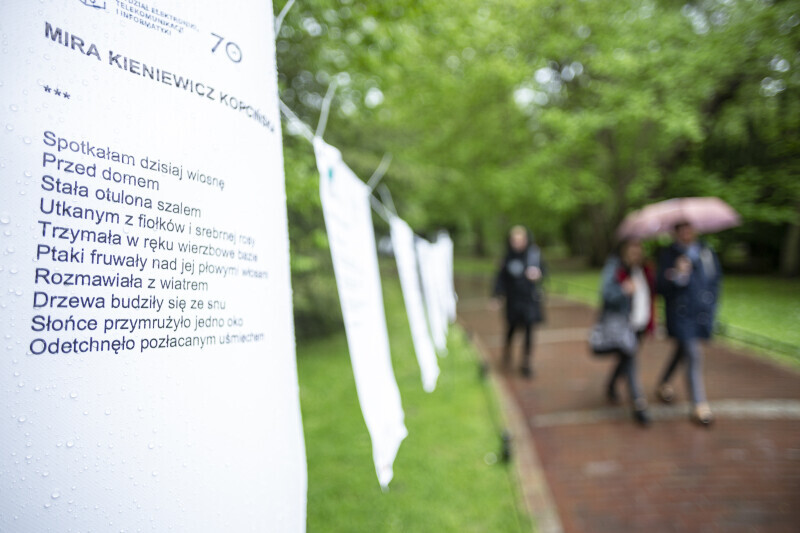 WYDZIAŁ ELEKTRONIKI,
TELEKOMUNIKACJI
I INFORMATYKI
70
MIRA KIENIEWICZ KOPCIŃSKA
***
Spotkałam dzisiaj wiosnę
Przed domem
Stała otulona szalem
Utkanym z fiołków i srebrnej rosy
Trzymała w ręku wierzbowe bazie
Ptaki fruwały nad jej płowymi włosami
Rozmawiała z wiatrem
Drzewa budziły się ze snu
Słońce przymrużyło jedno oko
Odetchnęło pozłacanym uśmiechem